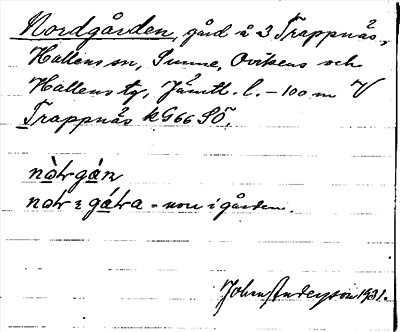 Nordgården, gård å 3 Trappnäs,
Hallens sn, Sunne, Ovikens och
Hallens tg, Jämtl. l. – 100 m V
Trappnäs kG66 SÖ.
nòtrgán
notr i gátra = norr i gården.
John Anderson 1931.